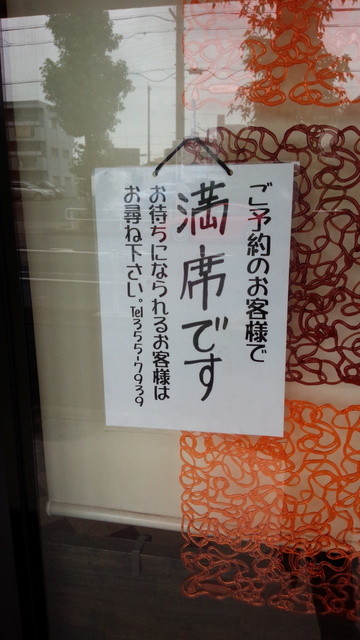 ご予約のお客様で
満席です
お待ちになられるお客様は
お尋ね下さい。℡355-7939